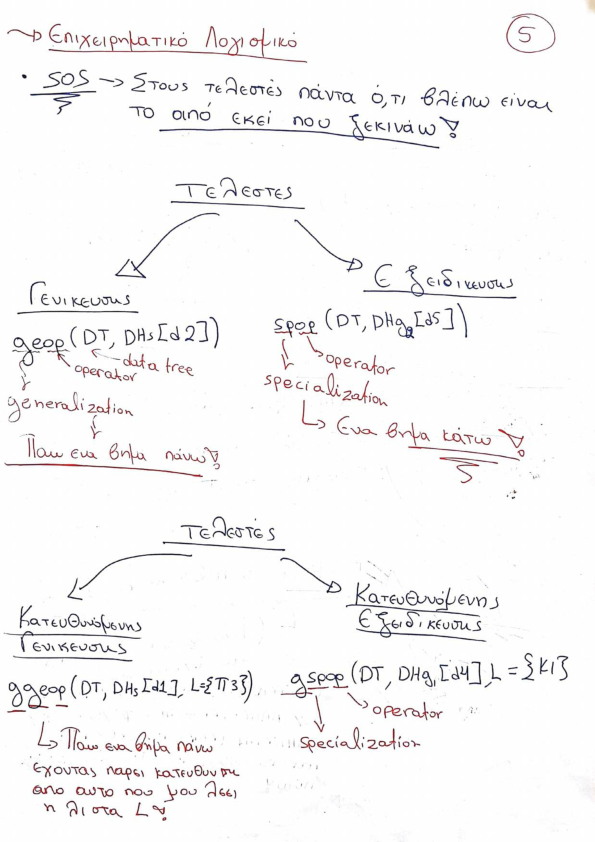 Επιχειρηματικό Λογισμικό
5
• SOS → Στους τελεστές πάντα ό,τι βλέπω είναι
το από εκεί που ξεκινάω!
Τελεστες
Γενικευσης
geop (DT, DHs[d2])
operator
data tree
generalization
Παω ενα βημα πάνω!
Εξειδικευσης
spop (DT, DHg2[d5])
operator
specialization
Ενα βημα κάτω!
Τελεστές
Κατευθυνόμενης
Γενικευσης
ggeop (DT, DHs[d1], L={π3})
Πάω ενα βήμα πάνω
έχοντας πάρει κατευθυνση
απο αυτο που μου λεει
η λιστα L!
Κατευθυνόμενης
Εξειδικευσης
gspop (DT, DHg1[d4], L={κ1}
operator
specialization